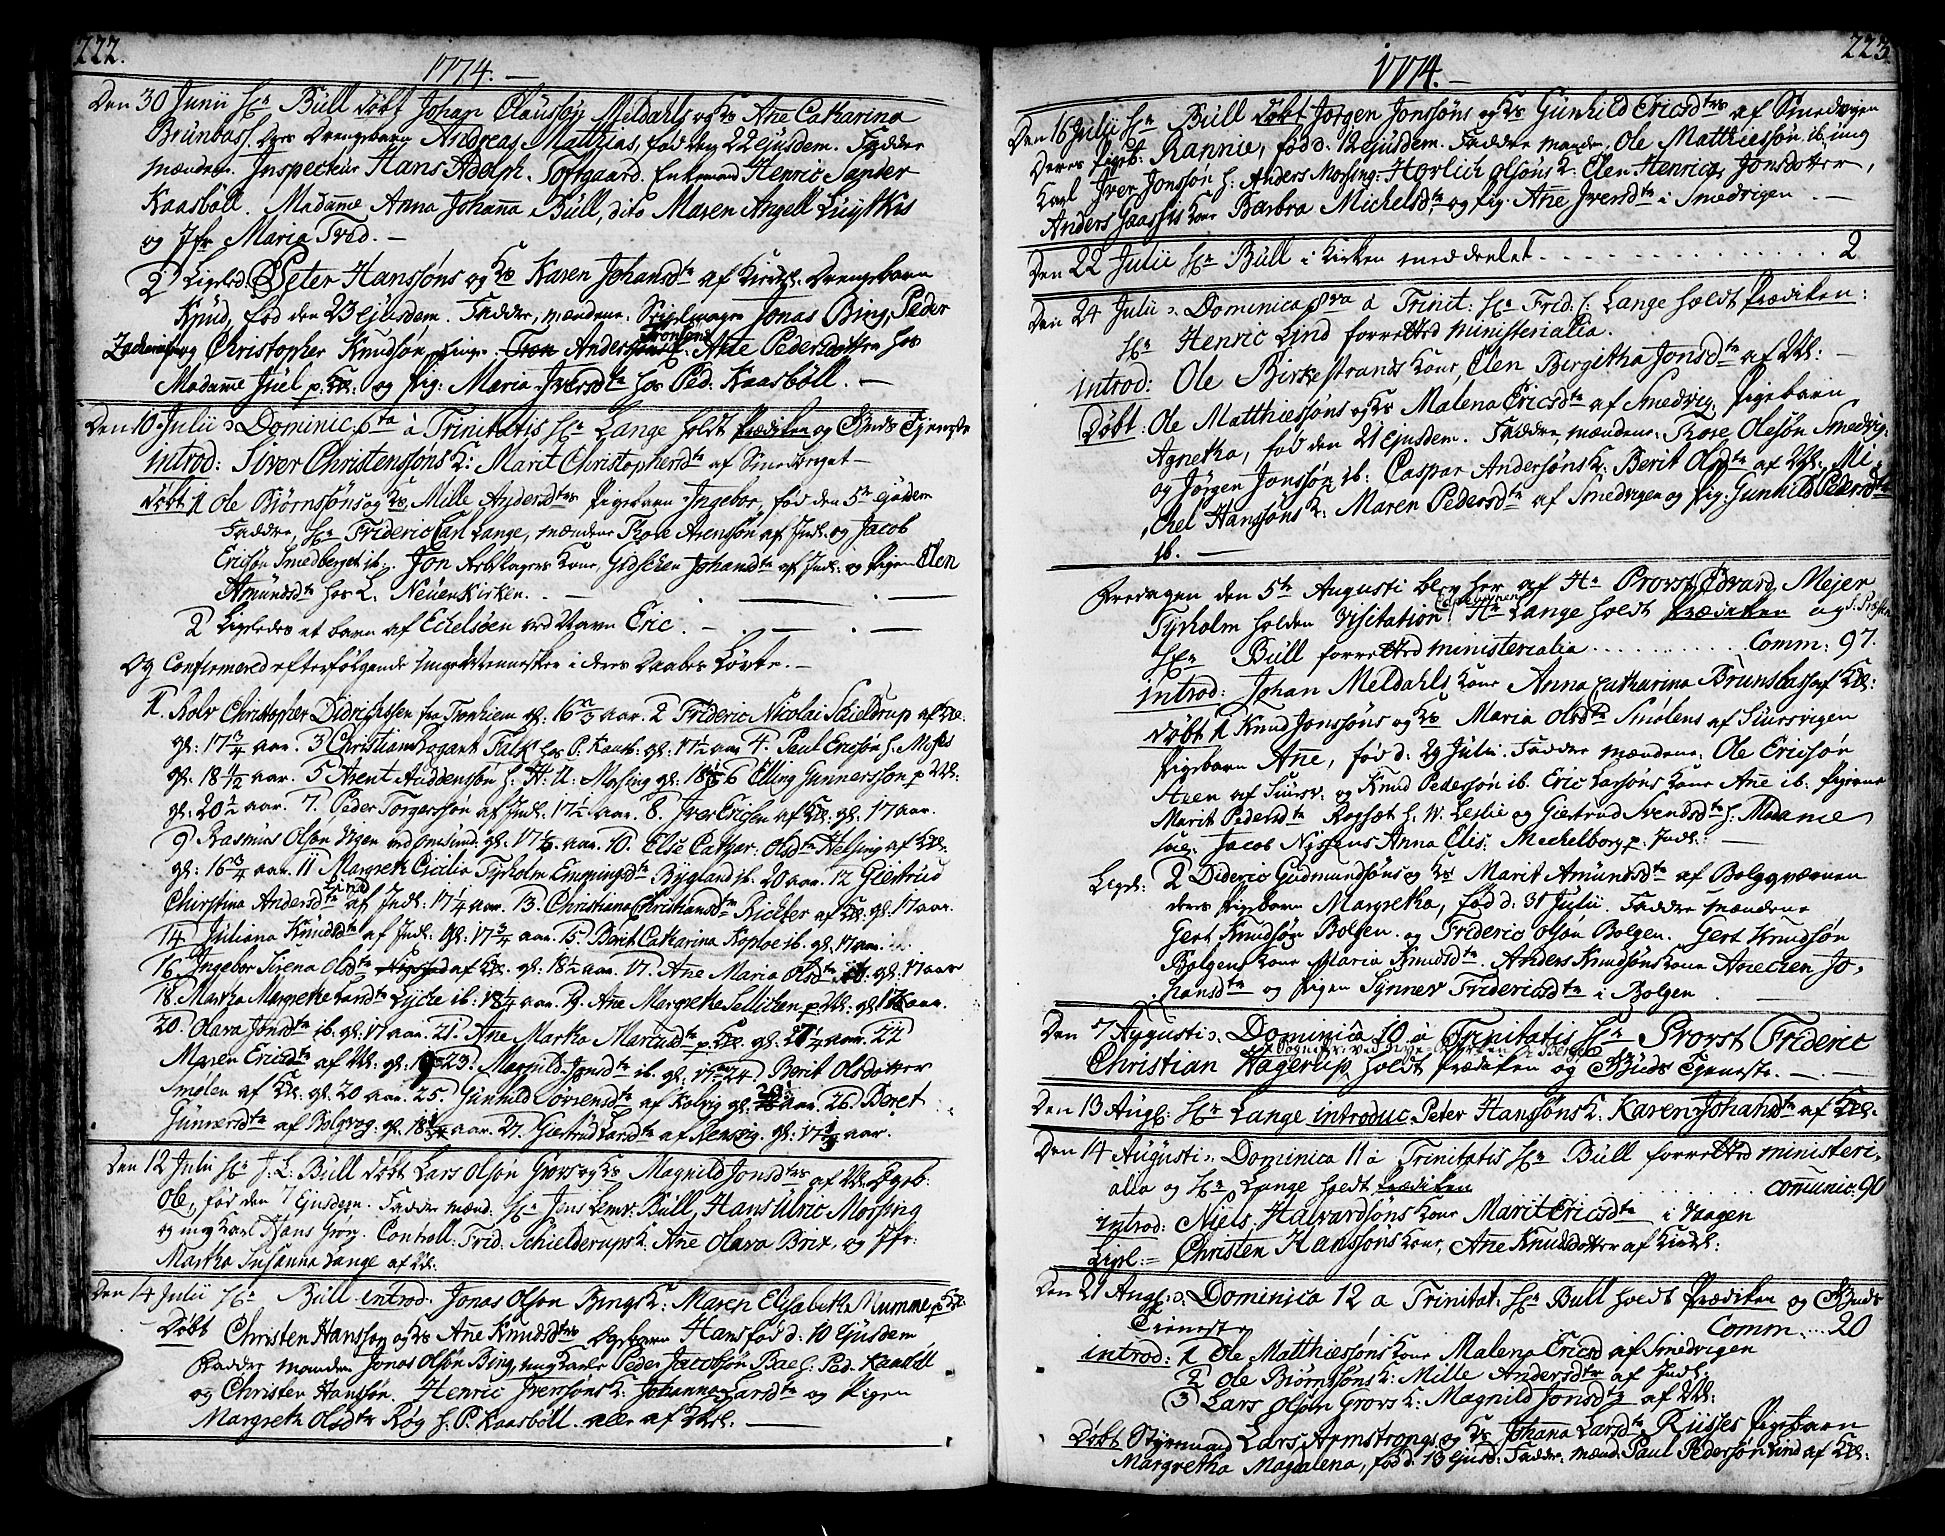 222.
1774.
Den 30 Junii Hr Büll døbt Johan Claussøn Meldahls og Ks Ane Catharina
Brünbas deres Drengebarn Andreas Matthias, fød den 22 ejusdem. Faddre
mændene. Inspecteur Hans Adolph Toftgaard. Enkemand Henric Sander
Kaasbøll. Madame Anna Johanna Büll, dito Maren Angell Luytkis
og Jfr Maria Tved.
2 Ligeled: Peter Hanssøns og Ks Karen Johansdtr af Kirkel: Drengebarn
Knud, fød den 23 ejusdem. Faddre, mændene. Jonas Bing, Peder
og Christopher Knudsøn, Anderssøns Ane Pedersdatter hos
Madame Juel p. Kl: og Pig: Maria Iversdtr hos Ped: Kaasbøll.
Den 10 Julii Dominic: 6ta à Trinitatis Hr Lange holdt Prædiken og Guds Tjeneste
introd: Siver Christenssøns K: Marit Christophersdtr af Smedberget
døbt 1 Ole Biørnsøns og Ks Mille Andersdtrs Pigebarn Ingebor, fød den 5te ejusdem
Faddre, Hr Frideric Carl Lange, mændene Rose Arenssøn af Indl: og Jacob
Ericsøn Smedberget ib. Jon Kone, Gidschen Johansdtr af Indl: og Pigen Elen
Amundsdtr hos L. Neuenkirken.
2 Ligeledes et barn af Eckelsøen ved Navn Eric.
Og Confirmered efterfølgende Unge Mennesker i deres Daabes Løvte.
1. Rolv Christopher Didrichssen fra Tronhiem gl: 16 aar. 2 Frideric Nicolai Schieldrup af Kl:
gl: 17 3/4 aar. 3 Christian Bogant Falk hos P. Kaasb: gl: 17 1/2 aar 4. Paul Ericsøn h. Moses
gl: 18 1/2 aar. 5 Arent Auddensøn h. H: U. Mossing gl: 18 6 Elling Gunnerssøn p Vl:
gl: 20 1/2 aar. 7. Peder Torgerssøn af Indl: 17 1/2 aar. 8. Iver Ericsen af Kl: gl: 17 aar.
9 Rasmus Olsøn Ugen ved Omsund gl: 17 1/2 aar. 10. Else Cathar: Olsdtr Helsing af Kl:
gl: 16 3/4 aar. 11 Margreth Cicilia Tyrholm Emmingsdtr Bygland ib. 20 aar. 12 Giertrud
Christina Andersdtr Lind af Indl: 17 1/4 aar. 13. Christiana Christiansdtr Richter af Kl: gl: 17 aar.
14 Juliana Knudsdtr af Indl: gl: 17 3/4 aar. 15. Berit Catharina Koploe ib. gl: 17 aar.
16. Ingebor Sirena Olsdtr af Kl: gl: 18 1/2 aar. 17. Ane Maria Olsdtr gl: 17 aar
18. Martha Margrethe Larsdtr Lycke ib: 18 1/4 aar. 19. Ane Margrethe Sellichen p Vl: gl: 17 aar.
20. Olava Jonsdtr ib. gl: 17 aar. 21. Ane Martha Marcusdtr p Kl: gl: 17 1/4 aar 22
Maren Ericsdtr af Vl: gl: 23. Magnild Jonsdtr ib. gl: 17 24 Berit Olsdatter
Smølen af Kl: gl: 20 aar. 25. Gunhild Sørensdtr af Kolvig gl: aar. 26. Beret
Gunnersdtr af Bolgvog: gl: 18 3/4 aar. 27. Giertrud Larsdtr af Rensvig. gl: 17 aar.
Den 12 Julii Hr J: L: Büll døbt Lars Olsøn Grovs og Ks Magnild Jonsdtrs af Vl: Dgeb:
Ole, fød den 7 Ejusdem. Faddre mænd: Hr Jens Lemv: Büll, Hans Ulric Mossing
og ung Karl Hans Grøn. Controll: Frid: Schielderups K: Ane Olava Brix, og Jfr:
Martha Susanna Lange af Vl:
Den 14 Julii Hr Büll introd: Jonas Olsøn Bings K: Maren Elisabeth Mumme p Kl:
Døbt Christen Hanssøn og Ks Ane Knudsdtrs Dgebarn Hans fød d: 10 Ejusdem
Faddre mændene Jonas Olsøn Bing, ung karle Peder Jacobsøn Bae h. Ped: Kaasbøll
og Christen Hanssøn. Henric Iverssøns K: Johanna Larsdtr og Pigen
Margreth Olsdtr Røg h: P. Kaasbøll. alle af Kirkl:
223
1774.
Den 16 Julii Hr Büll døbt Jørgen Jonssøns og Ks Gunhild Ericsdtrs af Smedvigen
deres Pigeb: Rannie, fød d: 12 ejusdem. Faddre mænde, Ole Matthiessøn ib. ung
Karl Iver Jonssøn h: Anders Mossing: Horlich Olsøns K: Elen Henrica Jonsdotter,
Anders Kone Barbra Michelsdtr og Pig: Ane Iversdtr i Smedvigen
Den 22 Julii Hr Büll i Kirken meddeelet . . . . . . . . . . 2
Den 24 Julii Dominica 8va à Trinit: Hr Frid: C: Lange holdt Prædiken:
Hr Henric Lind forretted ministerialia.
introd: Ole Birkestrands Kone, Elen Birgitha Jonsdtr af Vl:
Døbt: Ole Matthiessøns og Ks Malena Ericsdtr af Smedvig, Pigebarn
Agnetha, fød den 21 Ejusdem. Faddre, mændene: Rose Olesøn Smedvig:
og Jørgen Jonssøn ib: Caspar Andersøns K: Berit Olsdtr af Vl: Mi-
chel Hanssøns K: Maren Pedersdtr af Smedvigen og Pig: Gunhild Pedersdtr
ib.
Fredagen den 5te Augusti blev her af Hr Provst Edvard Mejer
Tyrholm holden Visitation. Capellanen Hr Lange holdt Prædiken og
Hr Büll forretted ministerialia . . . . . . . Comm: 97.
introd: Johan Meldahls Kone Anna Catharina Brunsbas af Kl:
døbt 1 Knud Jonssøns og Ks Maria Olsdtr Smølens af Suursvigen
Pigebarn Ane, fød d: 29 Julii. Faddre mændene, Ole Ericsøn
Steen af Suursv: og Knud Pedersøn ib. Eric Larsøns Kone Ane ib. Pigerne
Marit Pedersdtr Rogsæt h. W. Leslie og Giertrud Svendsdtr h. Madame
sal: Jacob Nissens Anna Elis: Mechelborg p. Indl:
Ligel: 2 Dideric Gudmundsøns og Ks Marit Amundsdtr af Bolggværnen
deres Pigebarn Margretha, fød d: 31 Julii. Faddre Mændene
Gert Knudsøn Bolgen. og Frideric Olsøn Bolgen. Gert Knudsøn
Bolgens Kone Maria Knudsdtr. Anders Knudsøns Kone Anechen Jo-
hansdtr og Pigen Synnev Fridericsdtr i Bolgen
Den 7 Augusti Dominica 10 à Trinitatis Hr Provst Frideric
Christian Hagerup, holdt Prædiken og Guds Tjeneste.
Sogner: ved Nye Kirken i Bergen
Den 13 Aug: Hr Lange introduc: Peter Hanssøns K. Karen Johansdtr af Kl:
Den 14 Augusti Dominica 11 à Trinitatis Hr Büll forretted ministeri-
alia og Hr Lange holdt Prædiken . . . . . . comunic: 90
introd: Niels Halvardsøns Kone Marit Ericsdtr i Vaagen
Ligel: Christen Hanssøns Kone, Ane Knudsdotter af Kirkl:
Den 21 Aug: Dominica 12 à Trinitat: Hr Büll holdt Prædiken og Guds
Tieneste Comm . . . 20
introd: 1 Ole Matthiessøns Kone Malena Ericsd af Smedvigen
2 Ole Biørnssøns K: Mille Andersdtr af Indl:
3 Lars Olsøn Grovs K: Magnild Jonsdtr af Vl:
Døbt Styrmand Lars Armstrongs og Ks Johanna Larsdtr Riises Pigebarn
Margretha Magdalena, fød d. 13 Ejusd: Faddre: mænd: Paul Pedersøn Lind af Kl: